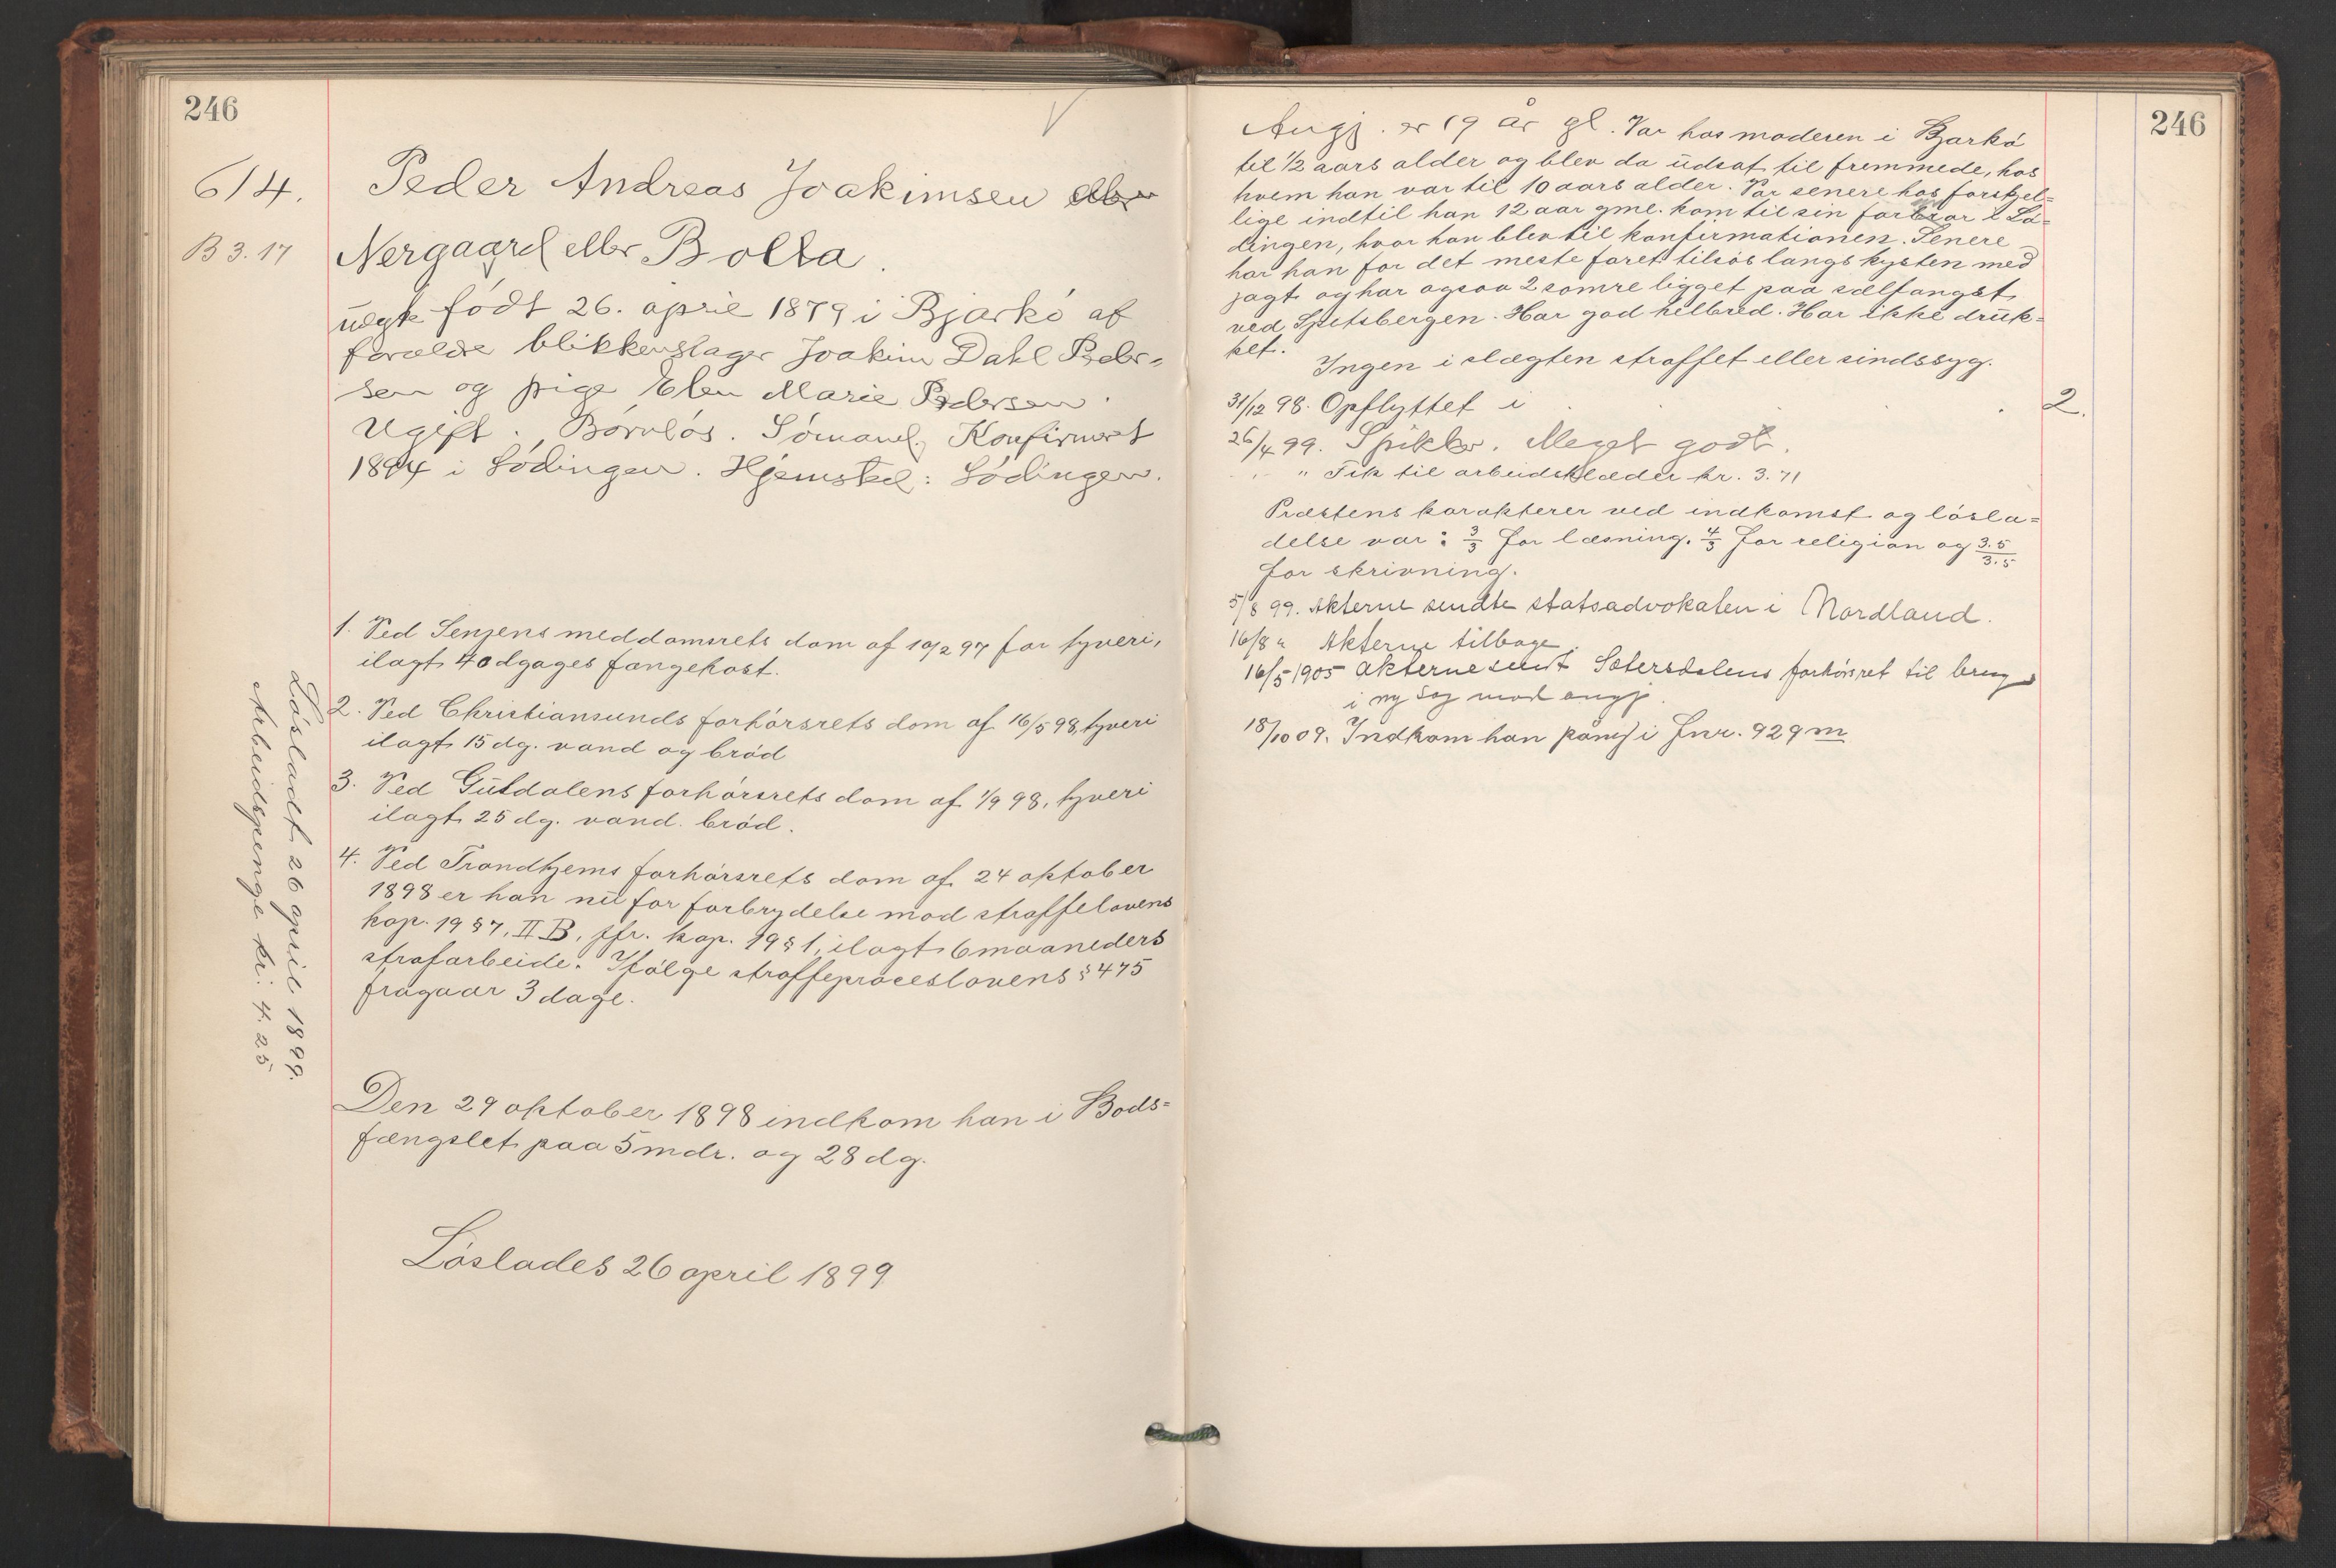 246
614.
B 3.17
Peder Andreas Joakimsen eller
Nergaard eller Bolla.
uægte født 26. april 1879 i Bjarkö af
forældre blikkenslager Joakim Dahl Peder-
sen og pige Elen Marie Pedersen.
Ugift. Barnlös. Sömand. Konfirmert
1894 i Lödingen. Hjemsted: Lödingen.
1. Ved Senjens meddomsrets dom af 10/2 97 for tyveri,
ilagt 40 dgages fangekost.
2. Ved Christiansunds forhörsrets dom af 16/5 98, tyveri
ilagt 15 dg. vand og bröd
3. Ved Guldalens forhörsrets dom af 1/9 98, tyveri
ilagt 25 dg. vand. bröd.
4. Ved Trondhjems forhörsrets dom af 24 oktober
1898 er han nu for forbrydelse mod straffelovens
kap. 19 § 7, II B, jfr. kap. 19 § 1, ilagt 6 maaneders
strafarbeide. Ifölge straffeproceslovens § 475
fragaar 3 dage.
Den 29 oktober 1898 indkom han i Bods=
fængslet paa 5 mdr. og 28 dg.
Löslades 26 april 1899
Lösladt 26 april 1899.
Arbeidspenge kr: 4.25
246
Angj. er 19 år gl. Var hos moderen i Bjarkö
til 1/2 aars alder og blev da udsat til fremmede, hos
hvem han var til 10 aars alder. Var senere hos forskjel=
lige indtil han 12 aar gml. kom til sin farbror i Lö=
dingen, hvor han blev til konfirmationen. Senere
har han for det meste faret tilsös langs kysten med
jagt og har ogsaa 2 somre ligget paa sælfangst
ved Spitsbergen. Har god helbred. Har ikke druk=
ket.
Ingen i slægten straffet eller sindssyg.
31/12 98. Opflyttet i 2.
26/4 99. Spikker. Meget godt.
" Fik til arbeidsklæder kr. 3.71
Præstens karakterer ved indkomst og lösla=
delse var: 3/3 for læsning. 4/3 for religion og 3.5/3.5
for skrivning.
5/8 99. Akterne sendte statsadvokaten i Nordland.
16/8 " Akterne tilbage.
16/5 1905 akterne sendt Sætersdalens forhörsret til brug
i ny sag mod angj.
18/10 09. Indkom han påny i Fnr. 929 m